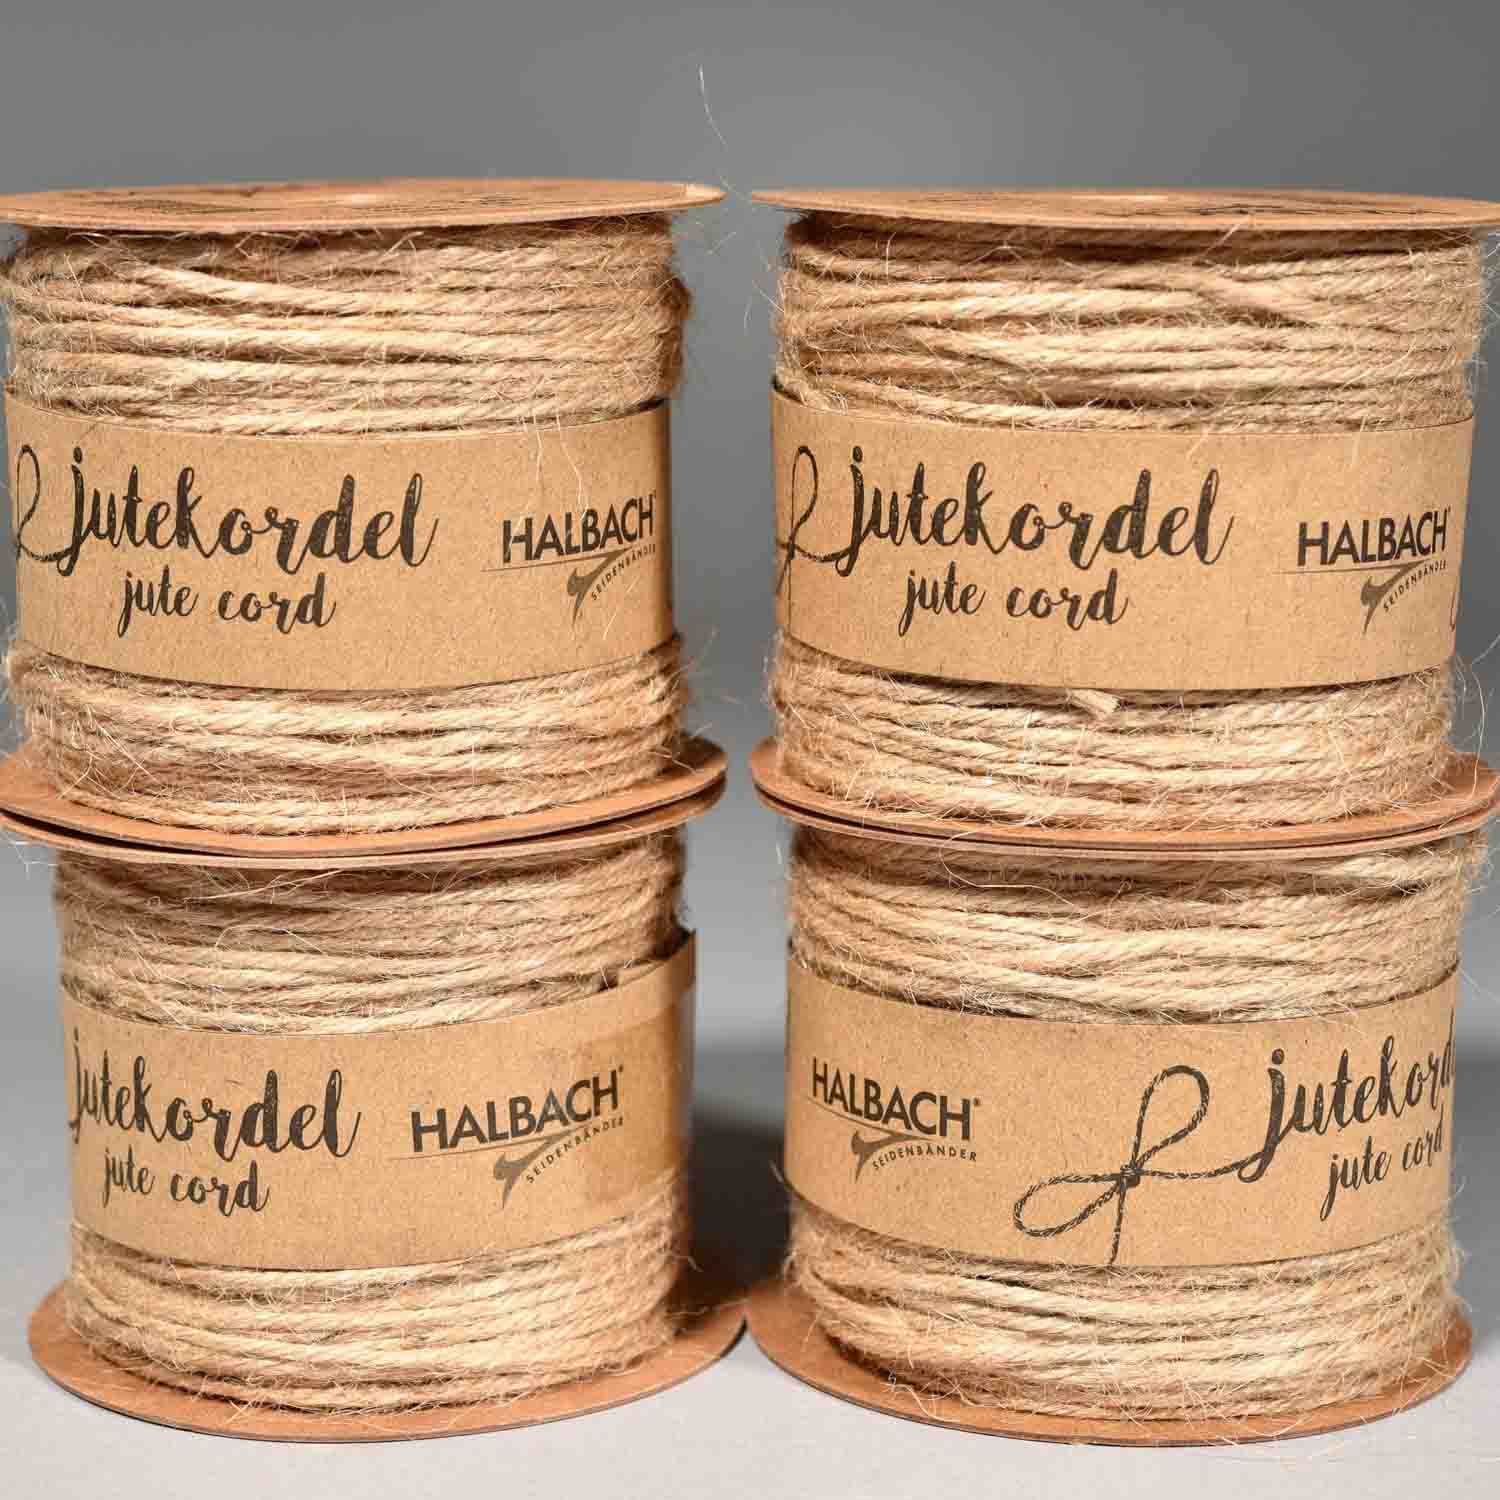 jutekordel
jute cord
HALBACH®
SEIDENBÄNDER
jutekordel
jute cord
HALBACH®
SEIDENBÄNDER
jutekordel
jute cord
HALBACH®
SEIDENBÄNDER
HALBACH®
SEIDENBÄNDER
jutekord
jute cord